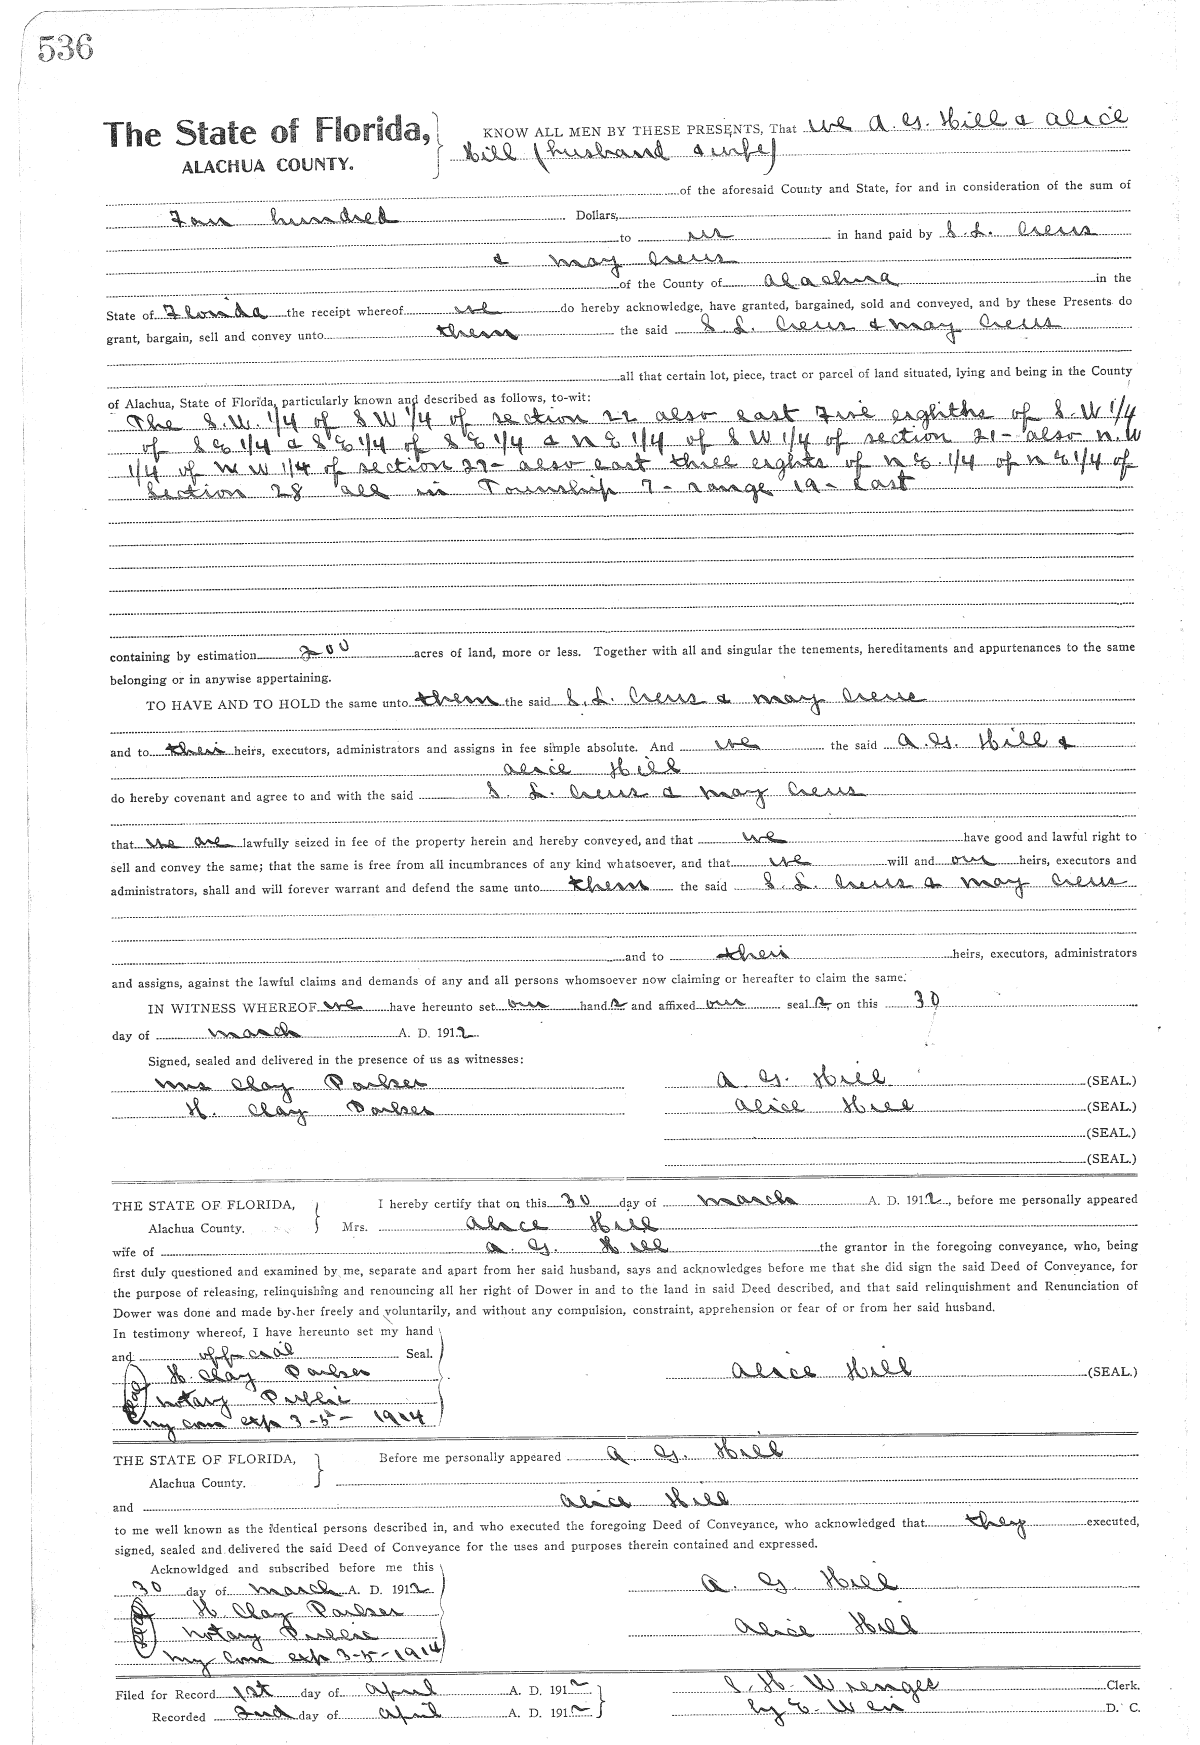 536
The State of Florida, KNOW ALL MEN BY THESE PRESENTS, That we A. G. Hill & Alice
ALACHUA COUNTY. Hill (husband & wife)
of the aforesaid County and State, for and in consideration of the sum of
hundred Dollars,
to us in hand paid by S. L. Crews
& May Crews
of the County of Alachua in the
State of Florida the receipt whereof we do hereby acknowledge, have granted, bargained, sold and conveyed, and by these Presents do
grant, bargain, sell and convey unto them the said S L. Crews & May Crews
all that certain lot, piece, tract or parcel of land situated, lying and being in the County
of Alachua, State of Florida, particularly known and described as follows, to-wit:
The S.W. 1/4 of S W 1/4 of section 22 also east Five eighths of S. W 1/4
of S E 1/4 & S E 1/4 of S E 1/4 & N E 1/4 of S W 1/4 of section 21 - also N. W
1/4 of N W 1/4 of section 27 - also east three eights of N E 1/4 of N E 1/4 of
Section 28 all in Township 7 - range 19 - East
containing by estimation 200 acres of land, more or less. Together with all and singular the tenements, hereditaments and appurtenances to the same
belonging or in anywise appertaining.
TO HAVE AND TO HOLD the same unto them the said S. L. Crews & May Crews
and to their heirs, executors, administrators and assigns in fee simple absolute. And we the said A. G. Hill &
Alice Hill
do hereby covenant and agree to and with the said S. L. Crews & May Crews
that we are lawfully seized in fee of the property herein and hereby conveyed, and that we have good and lawful right to
sell and convey the same; that the same is free from all incumbrances of any kind whatsoever, and that we will and our heirs, executors and
administrators, shall and will forever warrant and defend the same unto them the said S. L. Crews & May Crews
and to their heirs, executors, administrators
and assigns, against the lawful claims and demands of any and all persons whomsoever now claiming or hereafter to claim the same.
IN WITNESS WHEREOF we have hereunto set our hands and affixed our seals, on this 30
day of March A. D. 1912
Signed, sealed and delivered in the presence of us as witnesses:
Mrs Clay Parker A. G. Hill (SEAL.)
H. Clay Parker Alice Hill (SEAL.)
(SEAL.)
(SEAL.)
THE STATE OF FLORIDA, I hereby certify that on this 30 day of March A. D. 1912, before me personally appeared
Alachua County. Mrs. Alice Hill
wife of A. G. Hill the grantor in the foregoing conveyance, who, being
first duly questioned and examined by me, separate and apart from her said husband, says and acknowledges before me that she did sign the said Deed of Conveyance, for
the purpose of releasing, relinquishing and renouncing all her right of Dower in and to the land in said Deed described, and that said relinquishment and Renunciation of
Dower was done and made by her freely and voluntarily, and without any compulsion, constraint, apprehension or fear of or from her said husband.
In testimony whereof, I have hereunto set my hand
and official Seal.
H. Clay Parker Alice Hill (SEAL.)
Seal Notary Public
My Com exp 3-5- 1914
THE STATE OF FLORIDA, Before me personally appeared A G. Hill
Alachua County.
and Alice Hill
to me well known as the identical persons described in, and who executed the foregoing Deed of Conveyance, who acknowledged that they executed,
signed, sealed and delivered the said Deed of Conveyance for the uses and purposes therein contained and expressed.
Acknowldged and subscribed before me this
30 day of March A. D. 1912 A. G Hill
H. Clay Parker
Seal Notary Public Alice Hill
My Com exp 3-5-1914
Filed for Record 1st day of April A. D. 1912 S. H. Wienges Clerk.
Recorded 2nd day of April A. D. 1912 by E. Weir D. C.